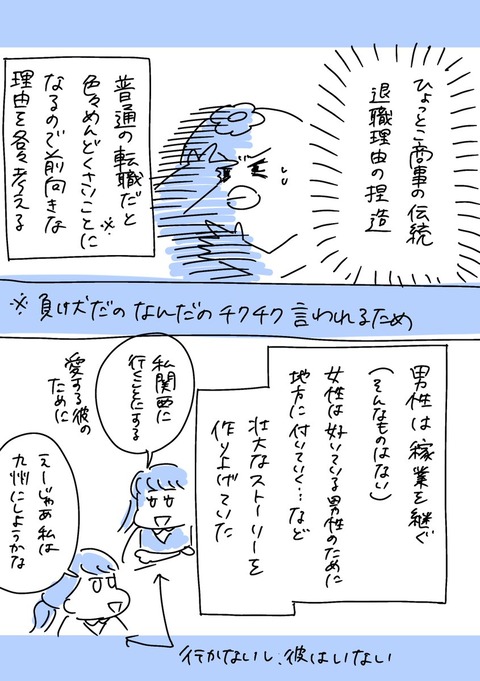 ひょっとこ商事の伝統
退職理由の捏造
普通の転職だと
色々めんどくさいことに※
なるので前向きな
理由を各々考える
※負け犬だのなんだのチクチク言われるため
男性は稼業を継ぐ
(そんなものはない)
女性は好いている男性のために
地方に付いていく…など
壮大なストーリーを
作り上げていた
私関西に
行くことにする
愛する彼の
ために
えーじゃあ私は
九州にしようかな
行かないし、彼はいない